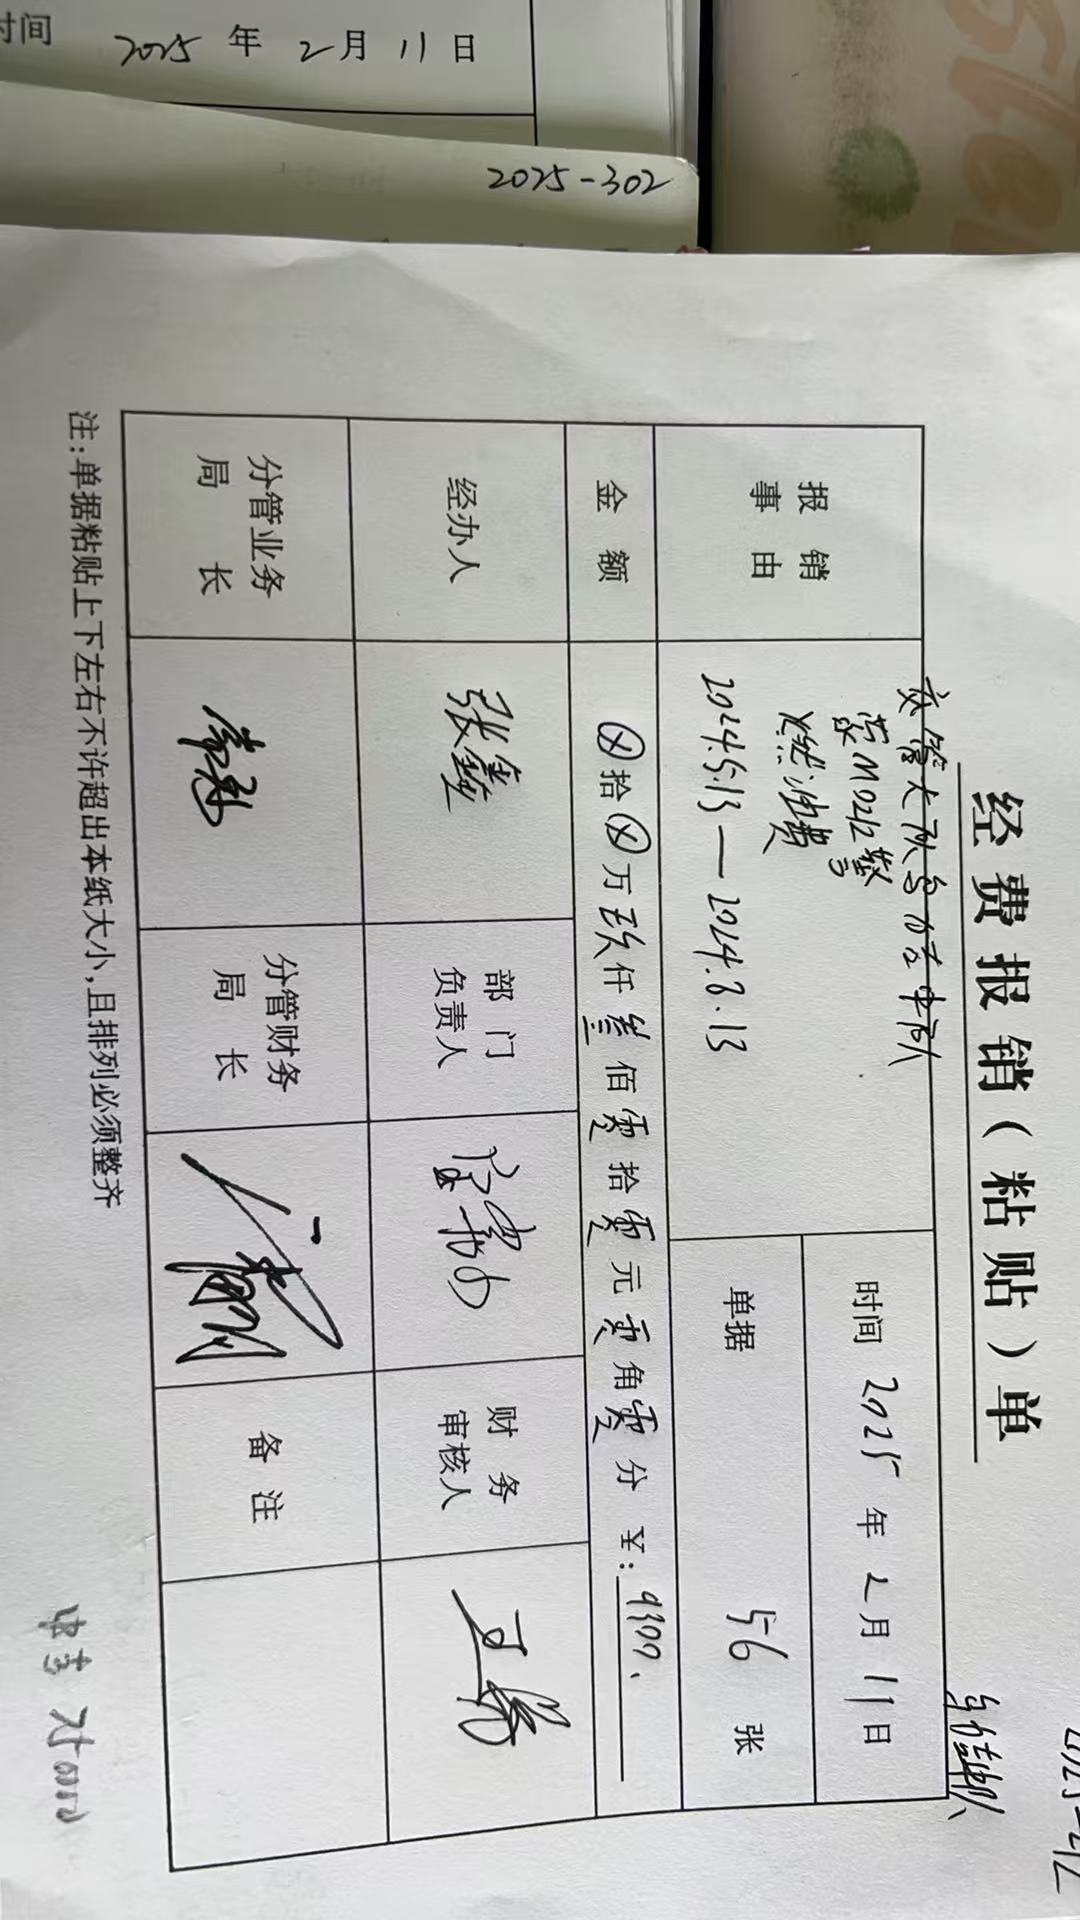 时间 2025 年 2 月 11 日
2025-302
经费报销（粘贴）单
交管大队乌力吉中队
蒙M0212警
燃油费
2024.5.13—2024.8.13
报销
事由
时间 2025 年 2 月 11 日
单据 56 张
金额
ⓧ拾ⓧ万玖仟叁佰零拾零元零角零分 ¥: 9300.
经办人
张鑫
部门
负责人
财务
审核人
分管业务
局长
分管财务
局长
备注
注:单据粘贴上下左右不许超出本纸大小,且排列必须整齐